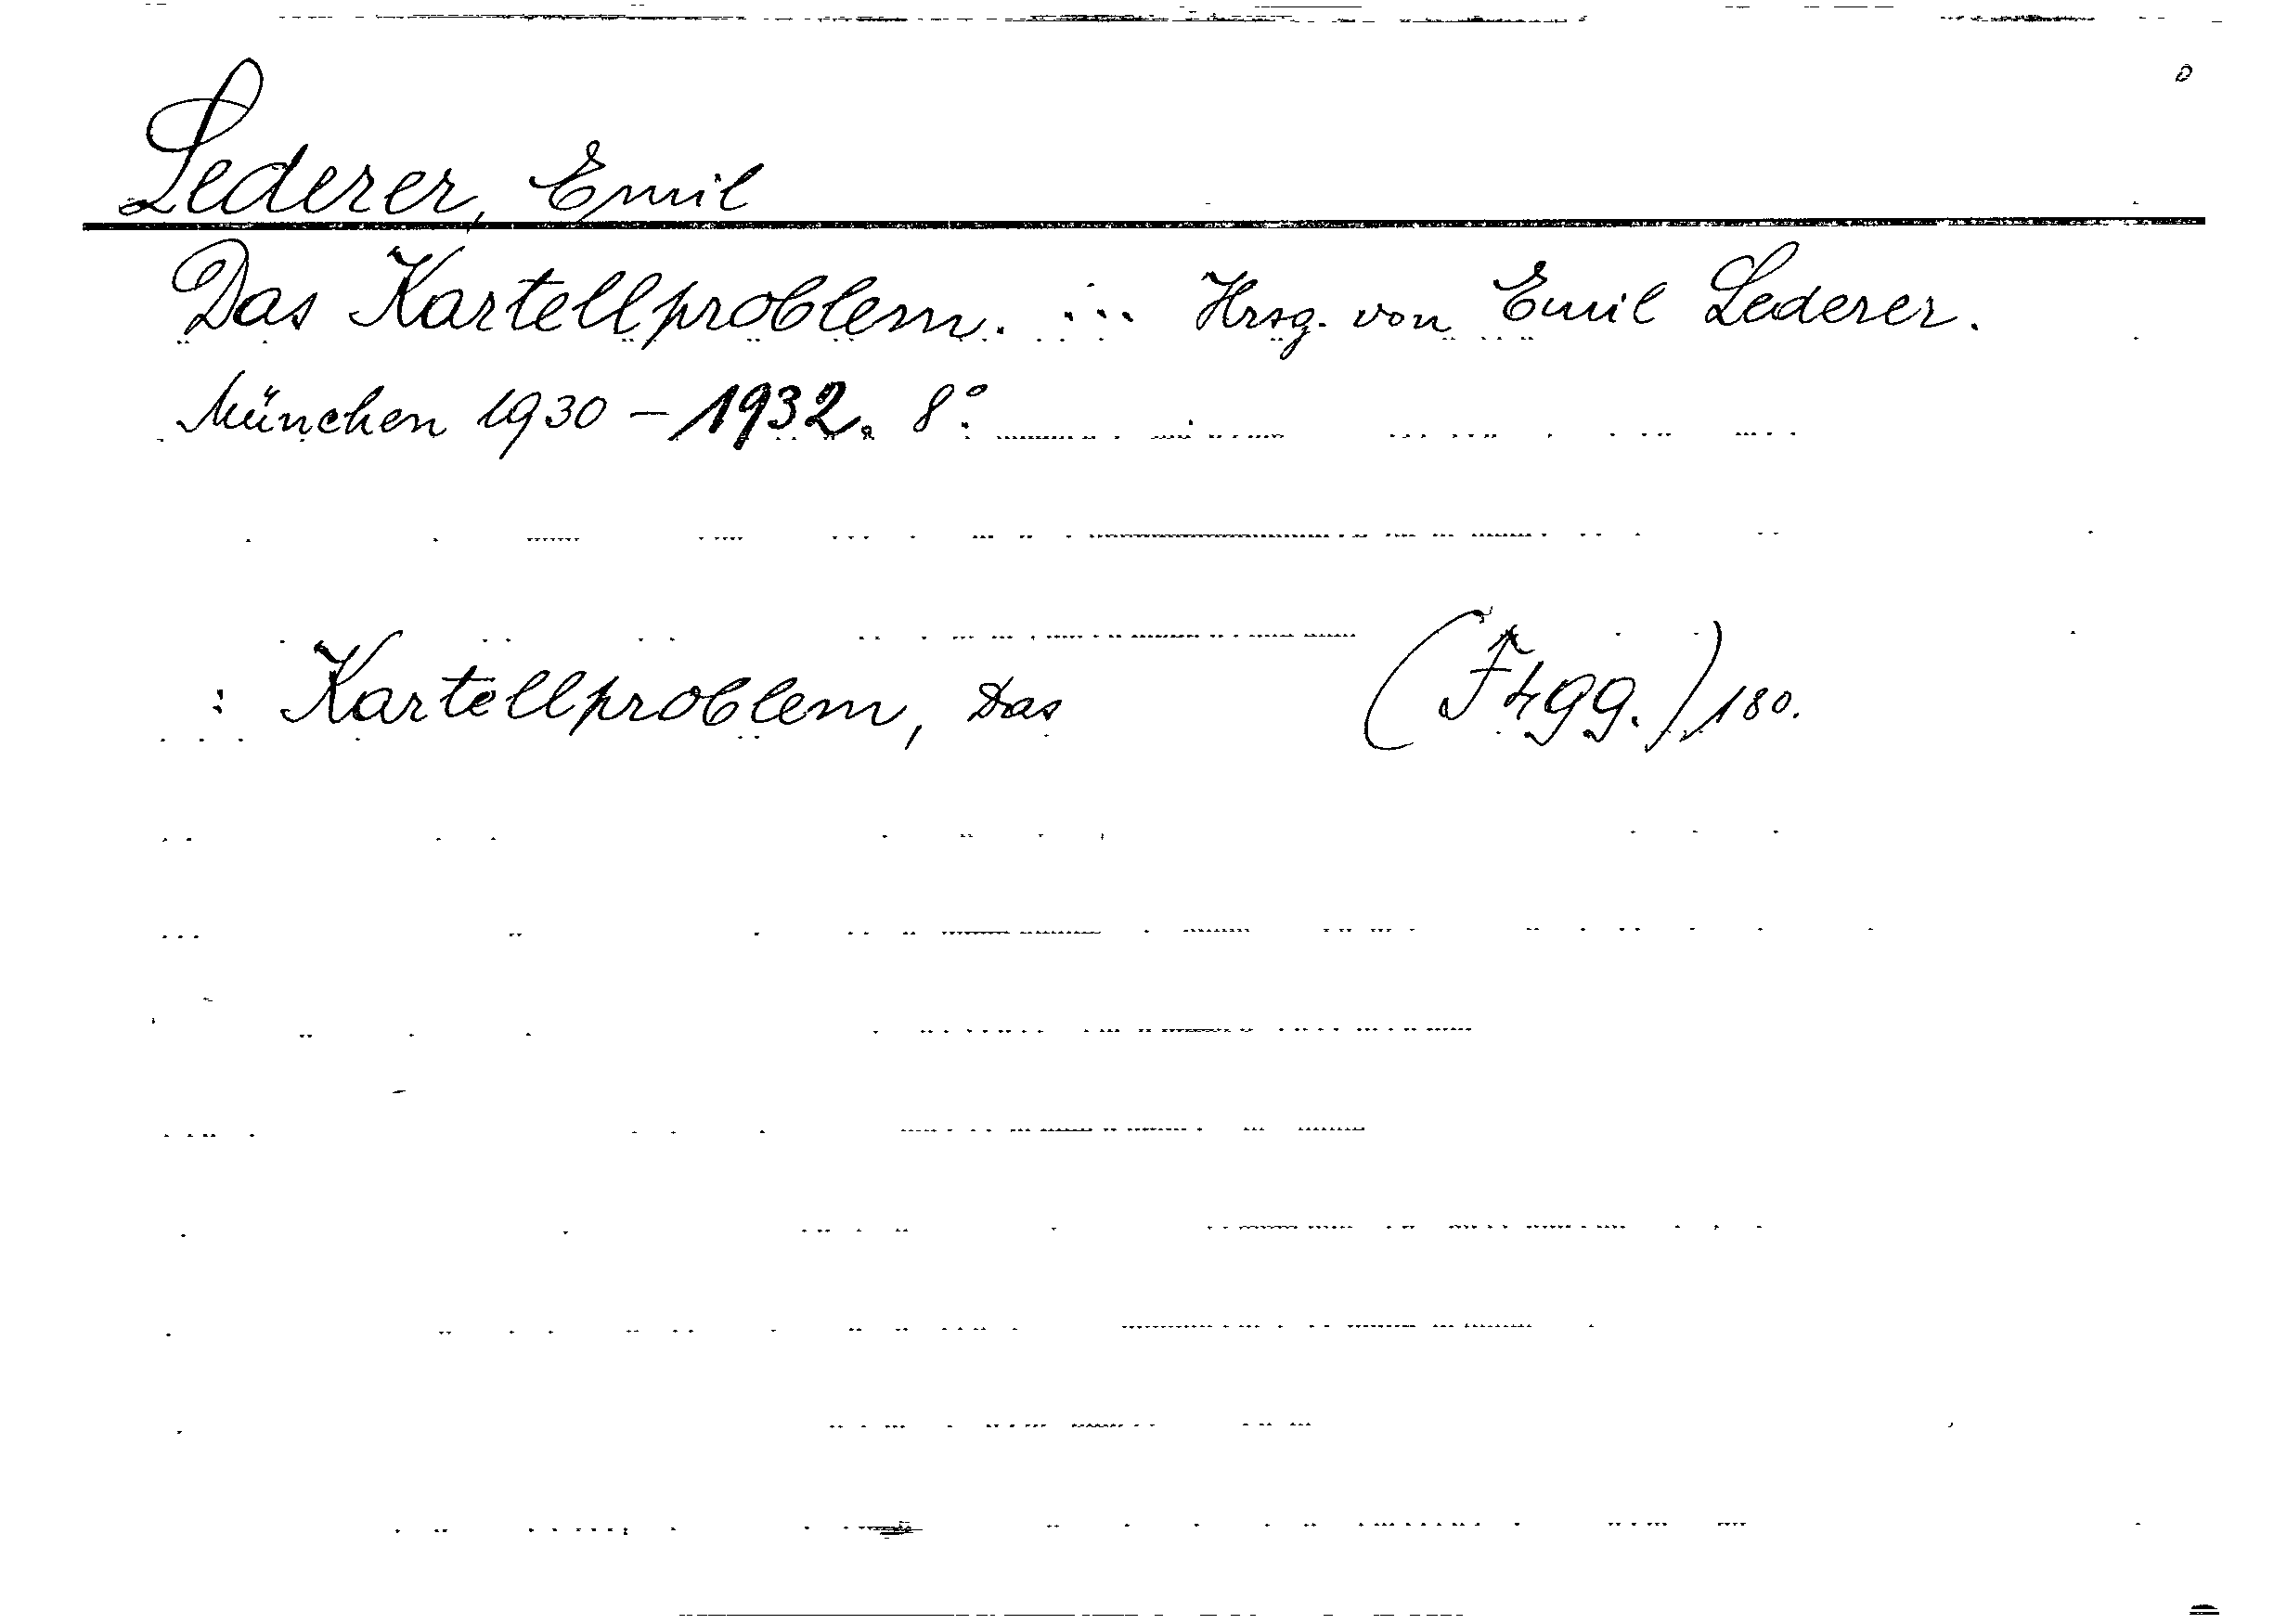 Lederer, Emil
Das Kartellproblem. ... Hrsg. von Emil Lederer.
München 1930 - 1932. 8°
: Kartellproblem, Das (F4gg.) 180.